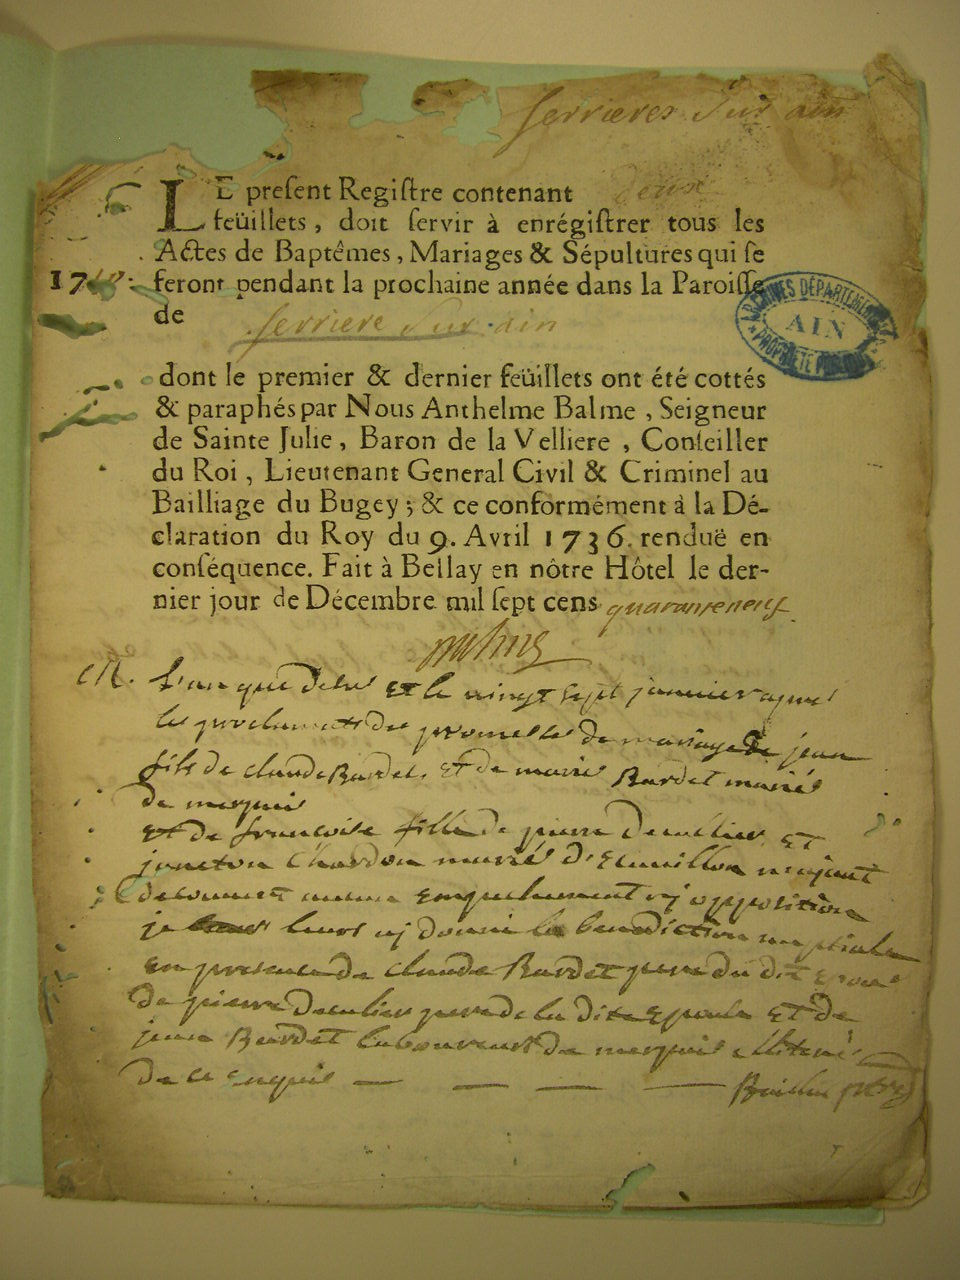 serrieres sur ain
LE present Registre contenant deux
feüillets, doit servir à enrégistrer tous les
Actes de Baptêmes, Mariages & Sépultures qui se
17
feront pendant la prochaine année dans la Paroisse
de serriere sur ain
ARCHIVES DÉPARTEMENTALES
AIN
PROPRIÉTÉ PUBLIQUE
dont le premier & dernier feüillets ont été cottés
& paraphés par Nous Anthelme Balme, Seigneur
de Sainte Julie, Baron de la Velliere, Conseiller
du Roi, Lieutenant General Civil & Criminel au
Bailliage du Bugey; & ce conformément à la Dé-
claration du Roy du 9. Avril 1736. renduë en
conséquence. Fait à Bellay en nôtre Hôtel le der-
nier jour de Décembre mil sept cens quaranteneuf
M. L'an que dessus et le vingt sept janvier apres
les des promesses de mariage de jean
fils de claude Bardet et de marie Bardet mariés
de
et de francoise fille de pierre et
mariés
opposition
je leurs aj donné la benediction nuptiale
en presence de claude Bardet pere du dit epoux
de pierre pere de la dite Epouse et de
jean Bardet laboureur de illiterés
de ce enquis